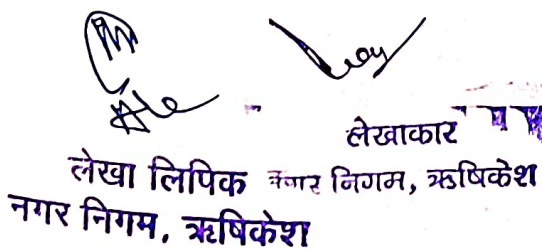 लेखाकार
लेखा लिपिक नगर निगम, ऋषिकेश
नगर निगम, ऋषिकेश